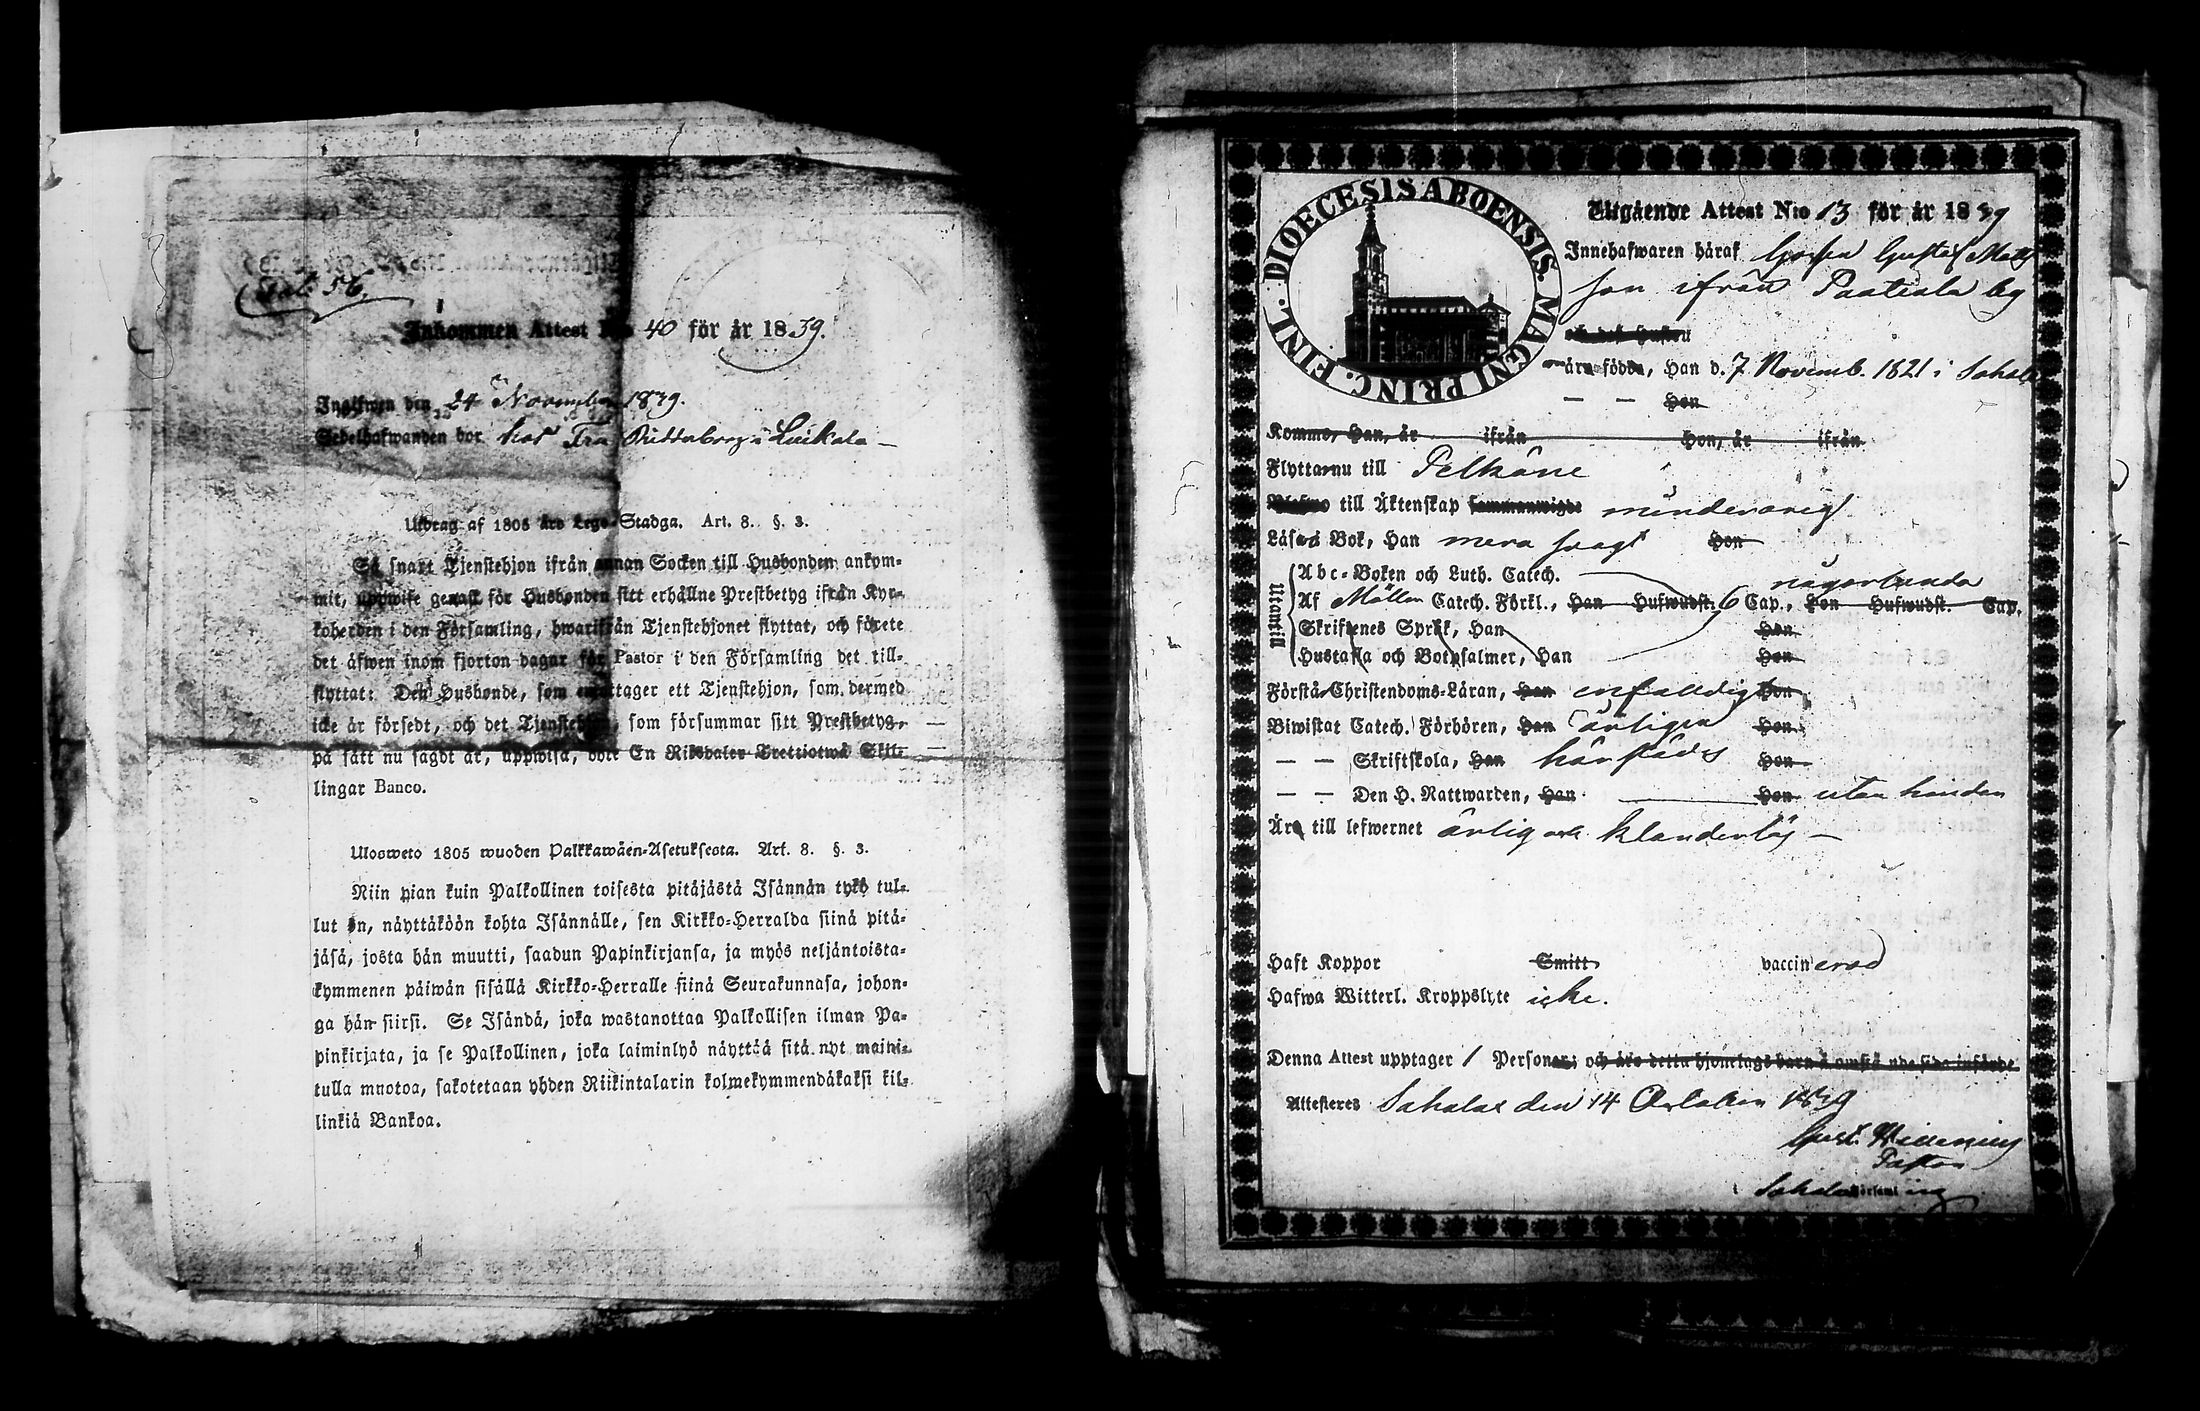 Fol. 56
Inkommen Attest No 40 för år 1839.
Ingifwen den 24 November 1839.
Sedelhafwanden bor hos Fru Ridderborg i Luikala
Utdrag af 1805 års Lego-Stadga. Art. 8. §. 3.
Så snart Tjenstehjon ifrån annan Socken till Husbonden ankom-
mit, uppwise genast för Husbonden sitt erhållne Prestbetyg ifrån Kyr-
koherden i den Församling, hwarifrån Tjenstehjonet flyttat, och förete
det äfwen inom fjorton dagar för Pastor i den Församling det till-
flyttat: Den Husbonde, som emottager ett Tjenstehjon, som dermed
icke är försedt, och det Tjenstehjon, som försummar sitt Prestbetyg,
på sätt nu sagdt är, uppwisa, böte En Riksdaler Trettiotwå Skil-
lingar Banco.
Ulosweto 1805 wuoden Palkkawäen-Asetuksesta. Art. 8. §. 3.
Niin pian kuin Palkollinen toisesta pitäjästä Isännän tykö tul-
lut on, näyttäköön kohta Isännälle, sen Kirkko-Herralda siinä pitä-
jäsä, josta hän muutti, saadun Papinkirjansa, ja myös neljäntoista-
kymmenen päiwän sisällä Kirkko-Herralle siinä Seurakunnasa, johon-
ga hän siirsi. Se Isändä, joka wastanottaa Palkollisen ilman Pa-
pinkirjata, ja se Palkollinen, joka laiminlyö näyttää sitä nyt maini-
tulla muotoa, sakotetaan yhden Riikintalarin kolmekymmendäkaksi kil-
linkiä Bankoa.
DIOECESIS ABOENSIS MAGNI PRINC. FINL.
Utgående Attest No 13 för år 1839
Innehafwaren häraf Gossen Gustaf Matts
son ifrån Paatiala by
och dess Hustru
äro födde, Han d. 7 Novemb. 1821 i Sahala
— — Hon
Komme, Han, år ifrån Hon, år ifrån
Flytta nu till Pelkäne
till Äktenskap sammanwigde minderårig
Läsa i Bok, Han mera svagt Hon
Utantill
Abc-Boken och Luth. Catech. någorlunda
Af Möllers Catech. Förkl., Han Hufwudst. 6 Cap., Hon Hufwudst. Cap.
Skriftenes Språk, Han Hon
Hustafla och Botpsalmer, Han Hon
Förstå Christendoms-Läran, Han enfalldigt Hon
Biwistat Catech. Förhören, Han årligen Hon
— — Skriftskola, Han härstädes Hon
— — Den H. Nattwarden, Han Hon utan hinder
Äro till lefwernet ärlig och klanderlös —
Haft Koppor Smitt vaccinerad
Hafwa Witterl. Kroppslyte icke.
Denna Attest upptager 1 Personer; och äro detta hjonelags barn å omstående sida införde.
Attesteres Sahalax den 14 October 1839
Gust. Hellening
Pastor
i Sahalax Församling